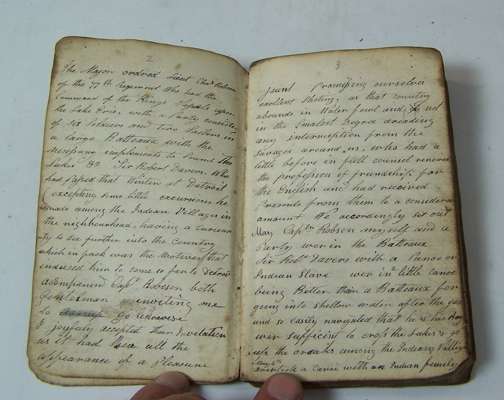 2
The Major ordered Lieut Chas Robertson
of the 77th Regiment Who had the
command of the Kings Vessels upon
the Lake Erie with a party consisting
of Six Sailours and two Soldiers in
a large Batteaux with the
necessary compliments to Sound the
Lakes &c Sir Robert Davers Who
had passed that Winter at Detroit
excepting some little excursions he
made among the Indian Villages in
the neighbourhood, having a curiosi
ty to see further into the Country
which in fact was the Motive that
induced him to come so far to Detroit
accompanied Captn Robson both
Gentleman inviting me
to go likewise
I joyfully accepted their Invetation
as it had all the
appearance of a Pleasure
3
Jaunt Promising ourselves
excellent Shoting, as that country
abounds in Water fowl and, not
in the smalest degree dreading
any interruption from the
Savages around us, who had a
little before in full counsel renewed
the profession of friendship for
the English and had received
Presents from them to a considerable
amount We accordingly set out
May Captn Robson myself and a
party wer in the Batteaux
Sir Robt Davers with a Panee or
Indian Slave wer in little canoe
being Better than a Batteaux for
going into shallow water after the
and so easily navigated that he & his Boy
wer sufficient to cross the Lakes & go
into the creeks among the Indian Villages
a Canoe with an Indian family